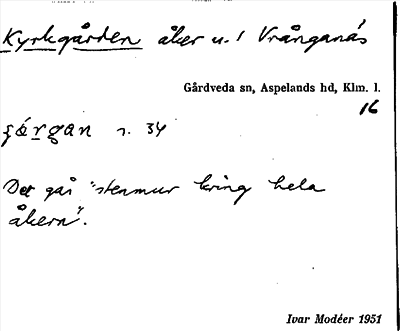 Kyrkgården åker u. / Vrånganäs
Gårdveda sn, Aspelands hd, Klm. l.
16
n. 34
Det går "stenmur kring hela
åkern".
Ivar Modéer 1951